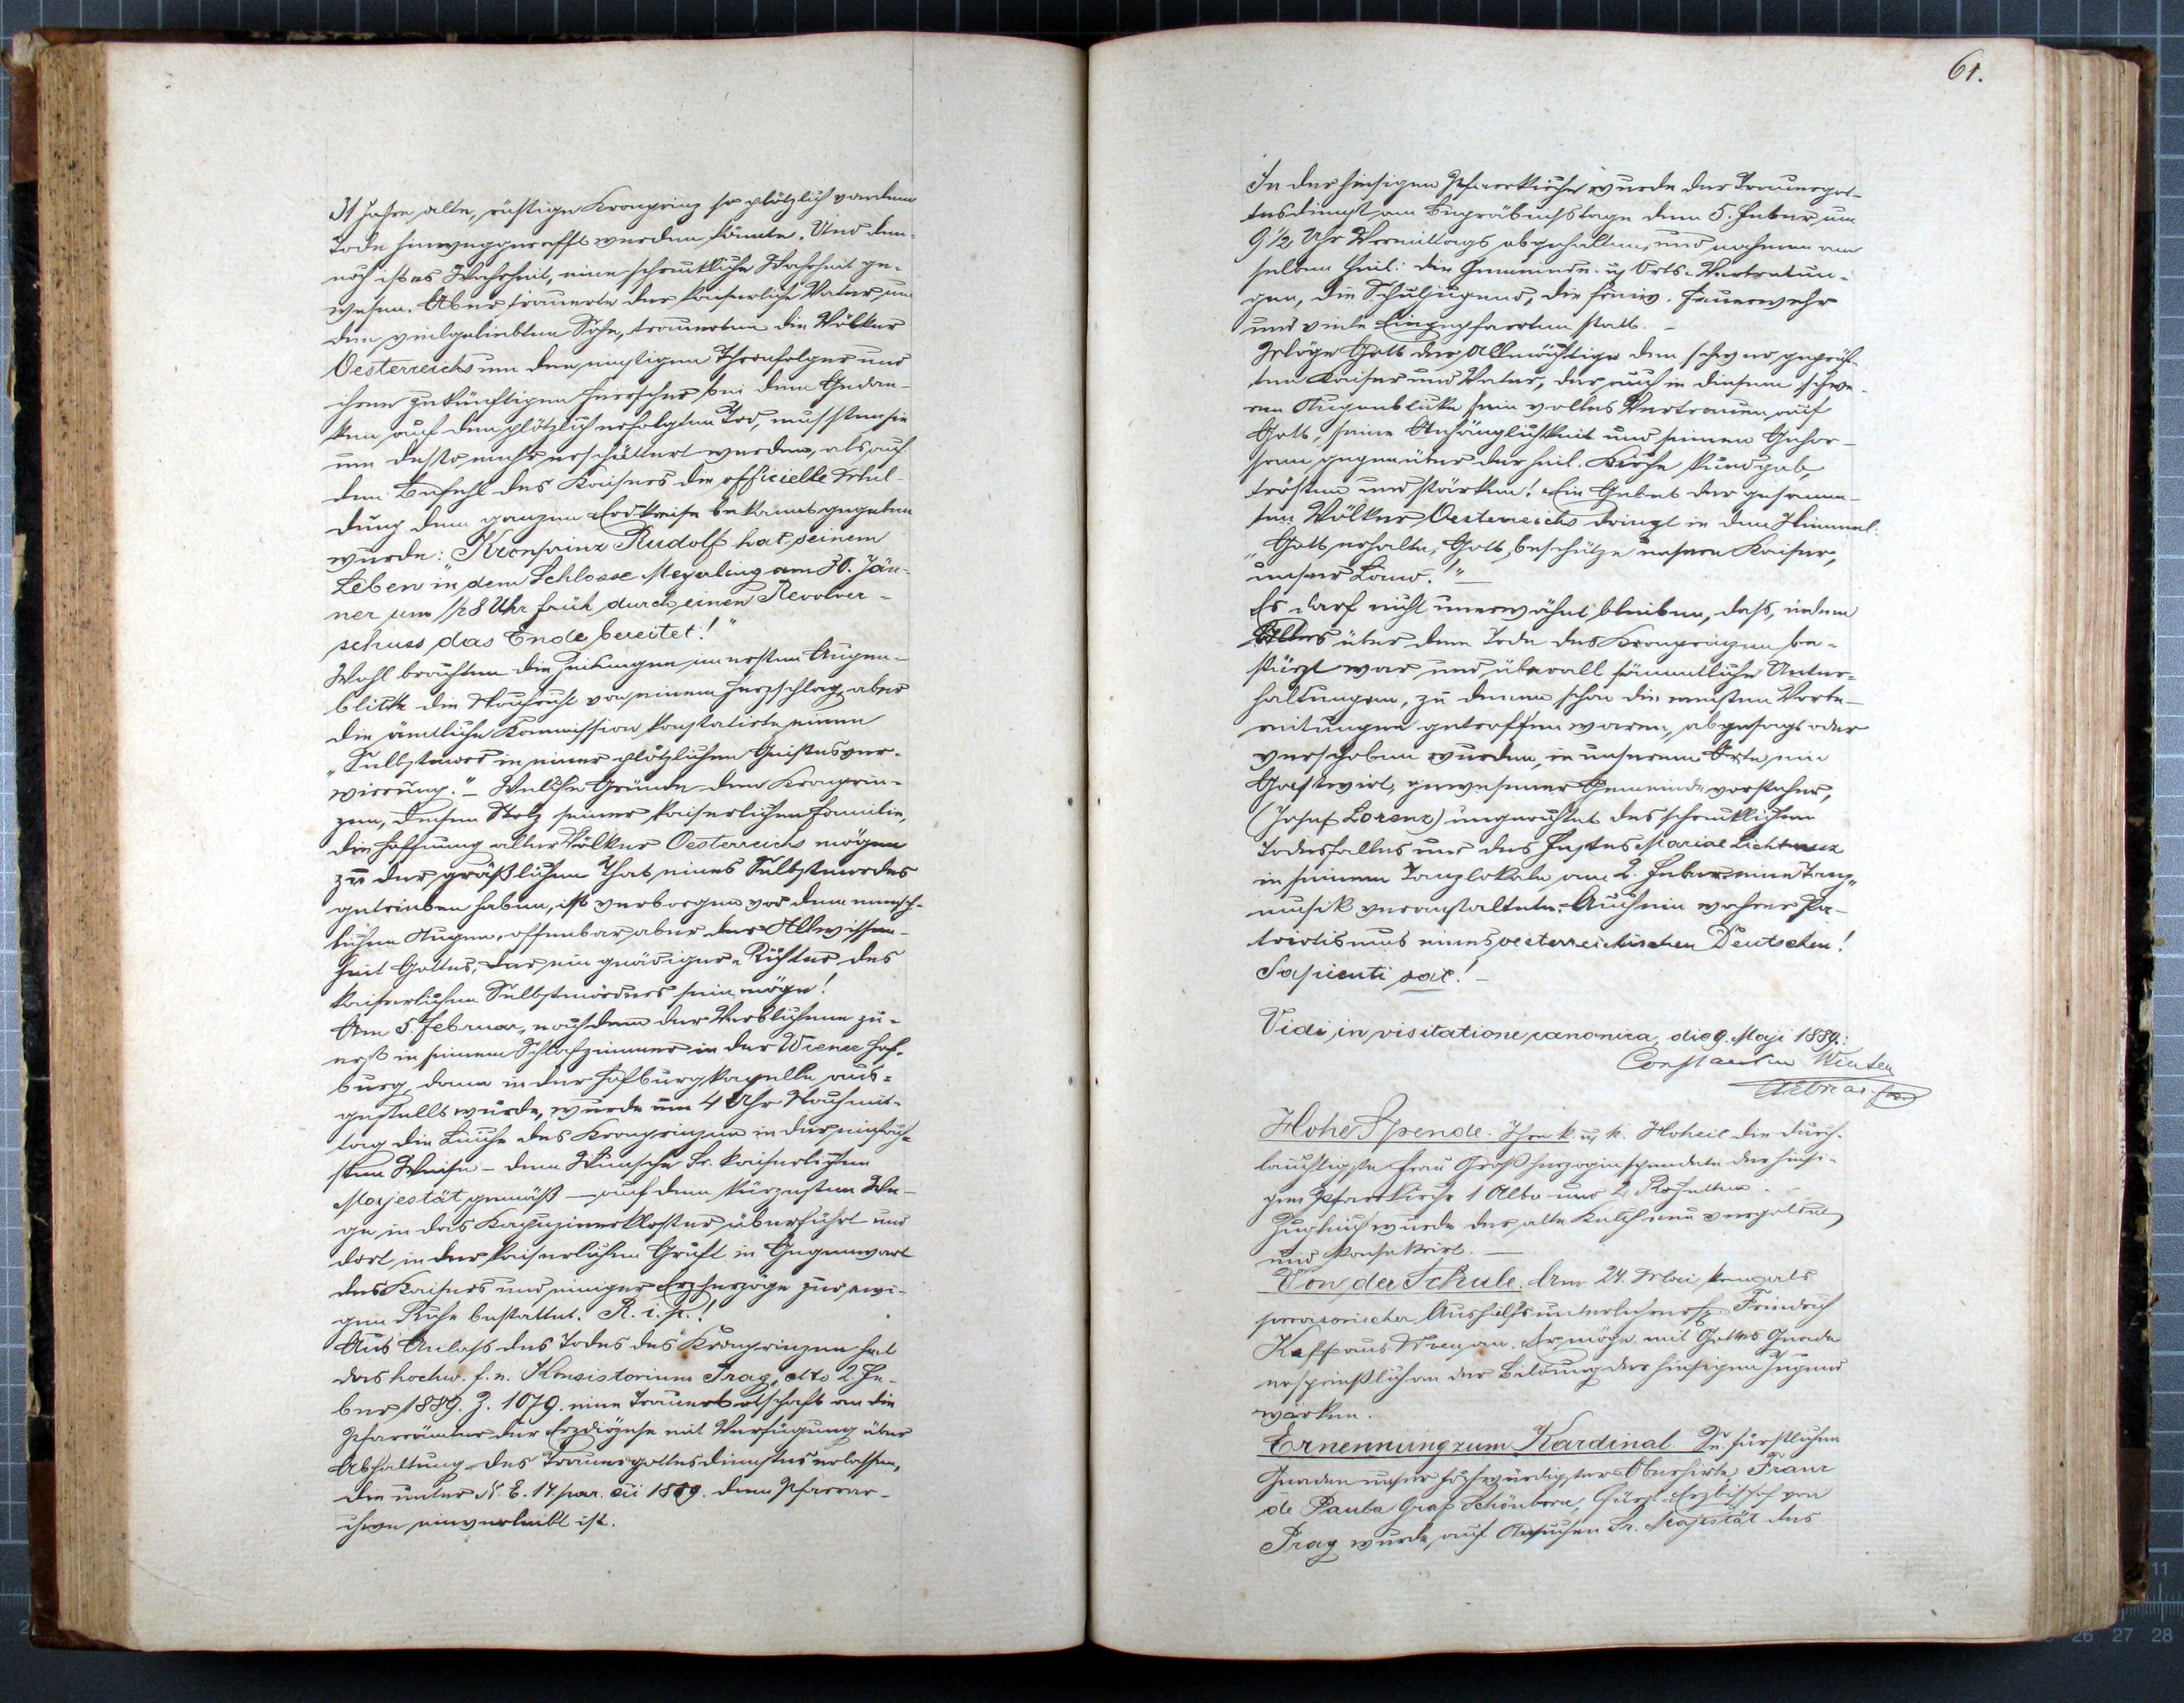 31 Jahre alte, rüstige Kronprinz so plötzlich von dem
Tode hinweggerafft werden könnte. Und den-
noch ist es Wahrheit, eine schreckliche Wahrheit ge-
wesen. Aber trauerte der kaiserliche Vater um
den vielgeliebten Sohn, trauerten die Völker
Oesterreichs um den einstigen Thronfolger und
ihren zukünftigen Herrscher bei dem Gedan-
ken auf den plötzlich erfolgten Tod, mussten sie
um desto mehr erschüttert werden, als auf
den Befehl des Kaisers die officielle Mel-
dung dem ganzen Erdkreise bekanntgegeben
wurde: „Kronprinz Rudolf hat seinem
Leben in dem Schlosse Meyerling am 30. Jän-
ner um 1/2 8 Uhr früh durch einen Revolver-
schuss das Ende bereitet!"
Wohl brachten die Zeitungen im ersten Augen-
blick die Nachricht von einem Herzschlag, aber
die ämtliche Kommission konstatirte einen
„Selbstmord in einer plötzlichen Geistesver-
wirrung." – Welche Gründe den Kronprin-
zen, diesen Stolz seiner kaiserlichen Familie,
die Hoffnung aller Völker Oesterreichs mögen
zu der gräßlichen That eines Selbstmordes
getrieben haben, ist verborgen vor den mensch-
lichen Augen, offenbar aber der Allwissen-
heit Gottes, der ein gnädiger Richter des
kaiserlichen Selbstmörders sein möge!
Am 5. Februar, nachdem der Verblichene zu-
erst in seinem Schlafzimmer in der Wiener Hof-
burg, dann in der Hofburgkapelle aus-
gestellt wurde, wurde um 4 Uhr Nachmit-
tag die Leiche des Kronprinzen in der einfach-
sten Weise – dem Wunsche Sr. kaiserlichen
Majestät gemäß – auf dem kürzesten We-
ge in das Kapuzinerkloster überführt und
dort in der kaiserlichen Gruft in Gegenwart
des Kaisers und einiger Erzherzöge zur ewi-
gen Ruhe bestattet. R. i. p.!
Aus Anlass des Todes des Kronprinzen hat
das hochw. f. e. Konsistorium Prag, dto 2. Fe-
ber 1889. Z. 1079. eine Trauerbotschaft an die
Pfarrämter der Erzdiözese mit Verfügung über
Abhaltung des Trauergottesdienstes erlassen,
die unter N. E. 14. 1889. dem Pfarrar-
chive einverleibt ist.
61.
In der hiesigen Pfarrkirche wurde der Trauergot-
tesdienst am Begräbnistage den 5. Feber um
9 1/2 Uhr Vormittags abgehalten, und nahmen am
selben theil: die Gemeinde- u. Orts-Vertretun-
gen, die Schuljugend, die freiw. Feuerwehr
und viele Eingepfarrten statt. –
Möge Gott der Allmächtige den schwer geprüf-
ten Kaiser und Vater, der auch in diesem schwe-
ren Augenblicke sein volles Vertrauen auf
Gott, seine Anhänglichkeit und seinen Gehor-
sam gegenüber der heil. Kirche kundgab,
trösten und stärken! Ein Gebet der gesamm-
ten Völker Oesterreichs dringt in den Himmel:
„Gott erhalte, Gott beschütze unsern Kaiser,
unser Land!" –
Es darf nicht unerwähnt bleiben, dass, indem
Alles über dem Tode des Kronprinzen be-
stürzt war und überall sämmtliche Unter-
haltungen, zu denen schon die meisten Vorbe-
reitungen getroffen waren, abgesagt oder
verschoben wurden, in unserem Orte, ein
Gastwirt, gewesener Gemeindevorsteher,
(Josef Lorenz) ungeachtet des schrecklichen
Todesfalles und des Festes Mariae Lichtmess
in seinem Tanzlokale am 2. Feber eine Tanz-
musik veranstaltete. Auch ein wahrer Pa-
triotismus eines oesterreichischen Deutschen!
Sapienti sat! –
Vidi in visitatione canonica, die 9. Maji 1889.:
Constantin
Hohe Spende. Ihre k. u. k. Hoheit die durch-
lauchtigste Frau Großherzogin spendete der hiesi-
gen Pfarrkirche 1 Alba und 2 Rochetten.
Zugleich wurde der alte Kelch neu vergoldet
und konsekrirt. –
Von der Schule. Am 24. Mai kam als
provisorischer Aushilfsunterlehrer H. Friedrich
aus an. Er möge mit Gottes Gnade
ersprießlich an der Bildung der hiesigen Jugend
wirken.
Ernennung zum Kardinal. Se. fürstlichen
Gnaden unser hochwürdigster Oberhirte Franz
de Paula Graf Schönborn, Fürst-Erzbischof von
Prag wurde auf Ansuchen Sr. Majestät des